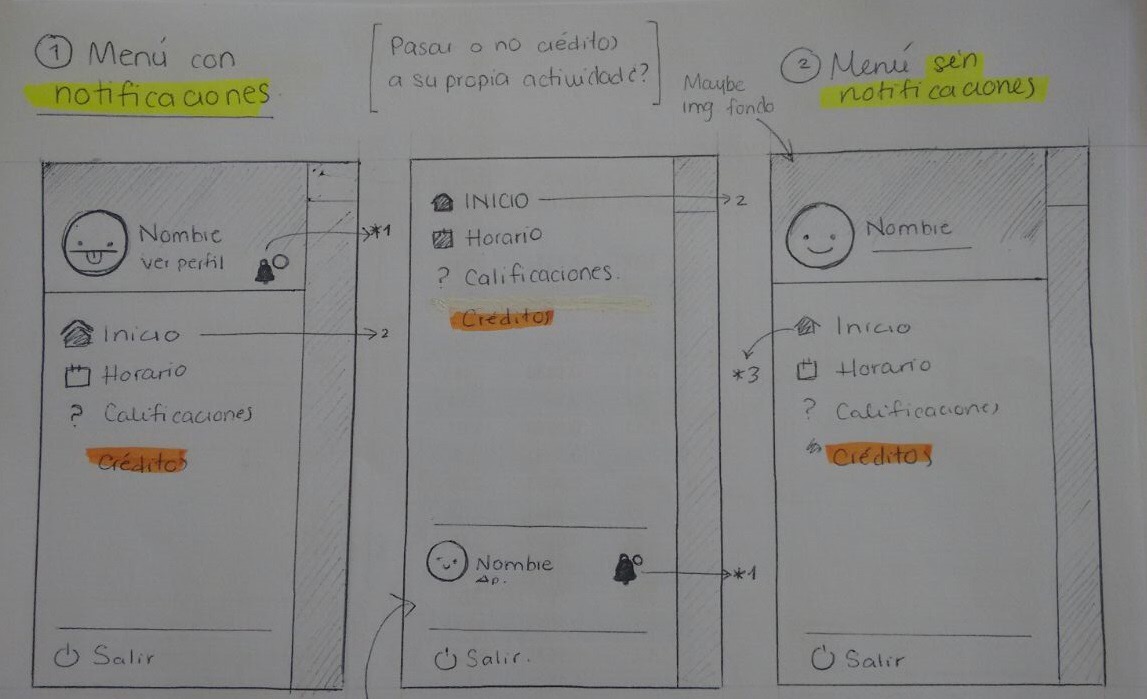 1 Menú con
notificaciones
[Pasar o no créditos
a su propia actividad¿?]
2 Menú sin
notificaciones
Maybe
img fondo
Nombre
ver perfil
*1
Inicio
2
Horario
? Calificaciones
Créditos
Salir
INICIO
2
Horario
? Calificaciones.
Créditos
Nombre
Ap.
*1
Salir.
Nombre
Inicio
*3
Horario
? Calificaciones
Créditos
Salir